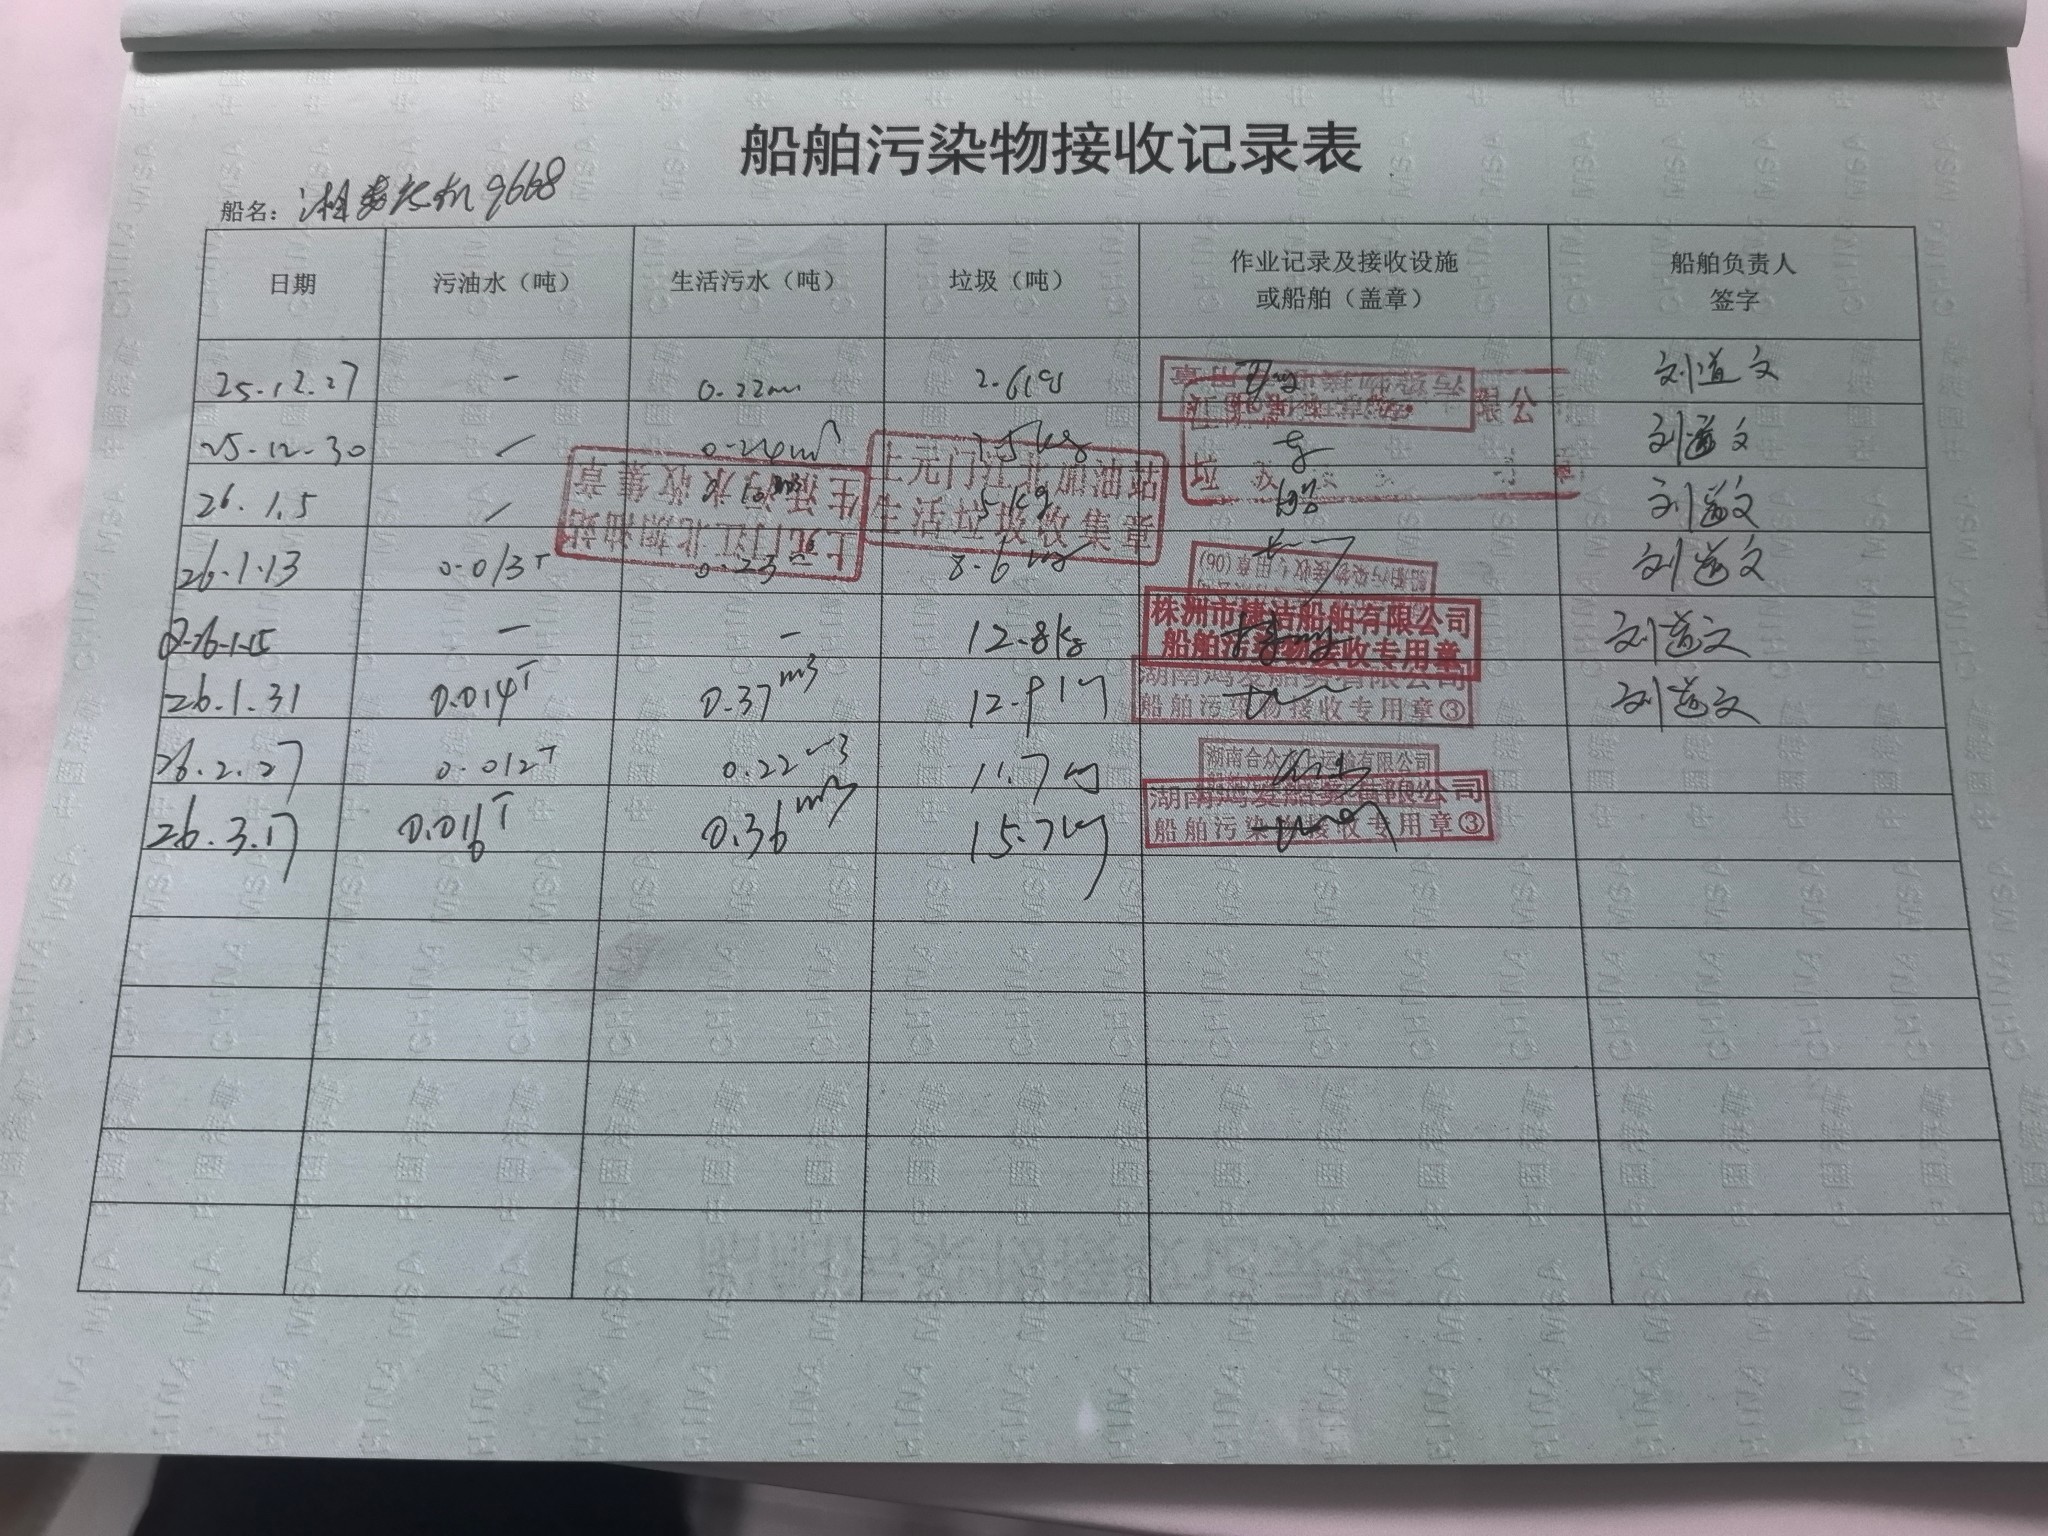 船舶污染物接收记录表
船名: 9668
日期 污油水（吨） 生活污水（吨） 垃圾（吨） 作业记录及接收设施或船舶（盖章） 船舶负责人签字
25.12.27 - 0.22 2.6 刘道文
25.12.30 - 0.24m³ 刘道文
26.1.5 - 5kg 刘道文
上元门江北加油站
生活垃圾收集章
上元门江北加油站
生活污水收集章
26.1.13 0.013T 0.23 8.6 刘道文
船舶污染物接收专用章(06)
26.1.15 - - 12.8kg 刘道文
株洲市捷洁船舶有限公司
船舶污染物接收专用章
26.1.31 0.014T 0.37m3 12.9 刘道文
湖南鸿发船务有限公司
船舶污染物接收专用章③
26.2.27 0.012T 0.22m3 11.7kg
湖南合众水上运输有限公司
26.3.17 0.016T 0.36m3 15.7kg
湖南鸿发船务有限公司
船舶污染物接收专用章③